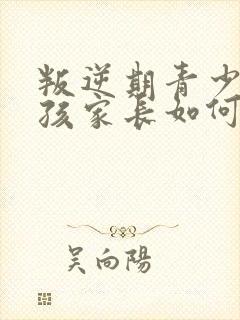 叛逆期青少
孩家长如何
吴向陽